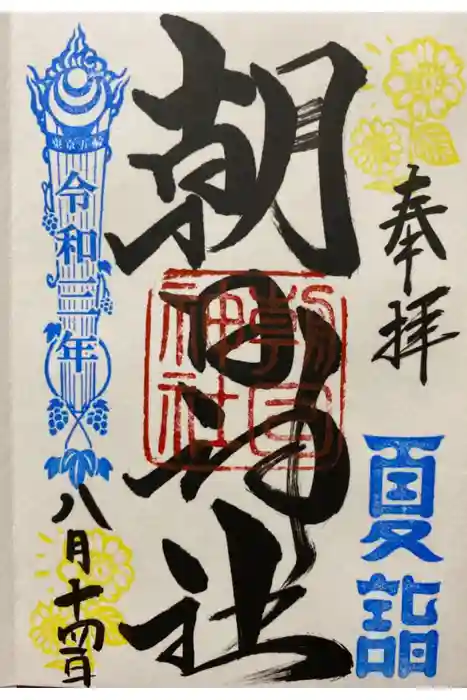 奉拝
夏詣
朝日神社
朝日神社
東京五輪
令和三年
八月十四日